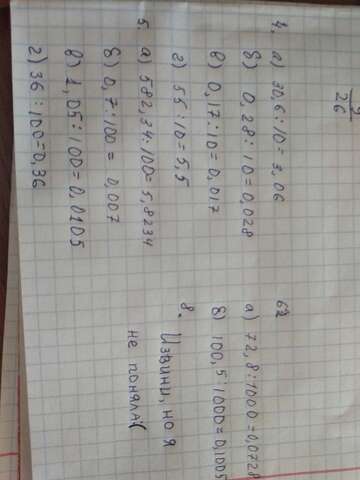 9
26
4. а) 30,6:10=3,06
б) 0,28:10=0,028
в) 0,17:10=0,017
г) 55:10=5,5
5. а) 582,34:100=5,8234
б) 0,7:100=0,007
в) 1,05:100=0,0105
г) 36:100=0,36
62
а) 72,8:1000=0,0728
б) 100,5:1000=0,1005
8. Извини, но я
не поняла(